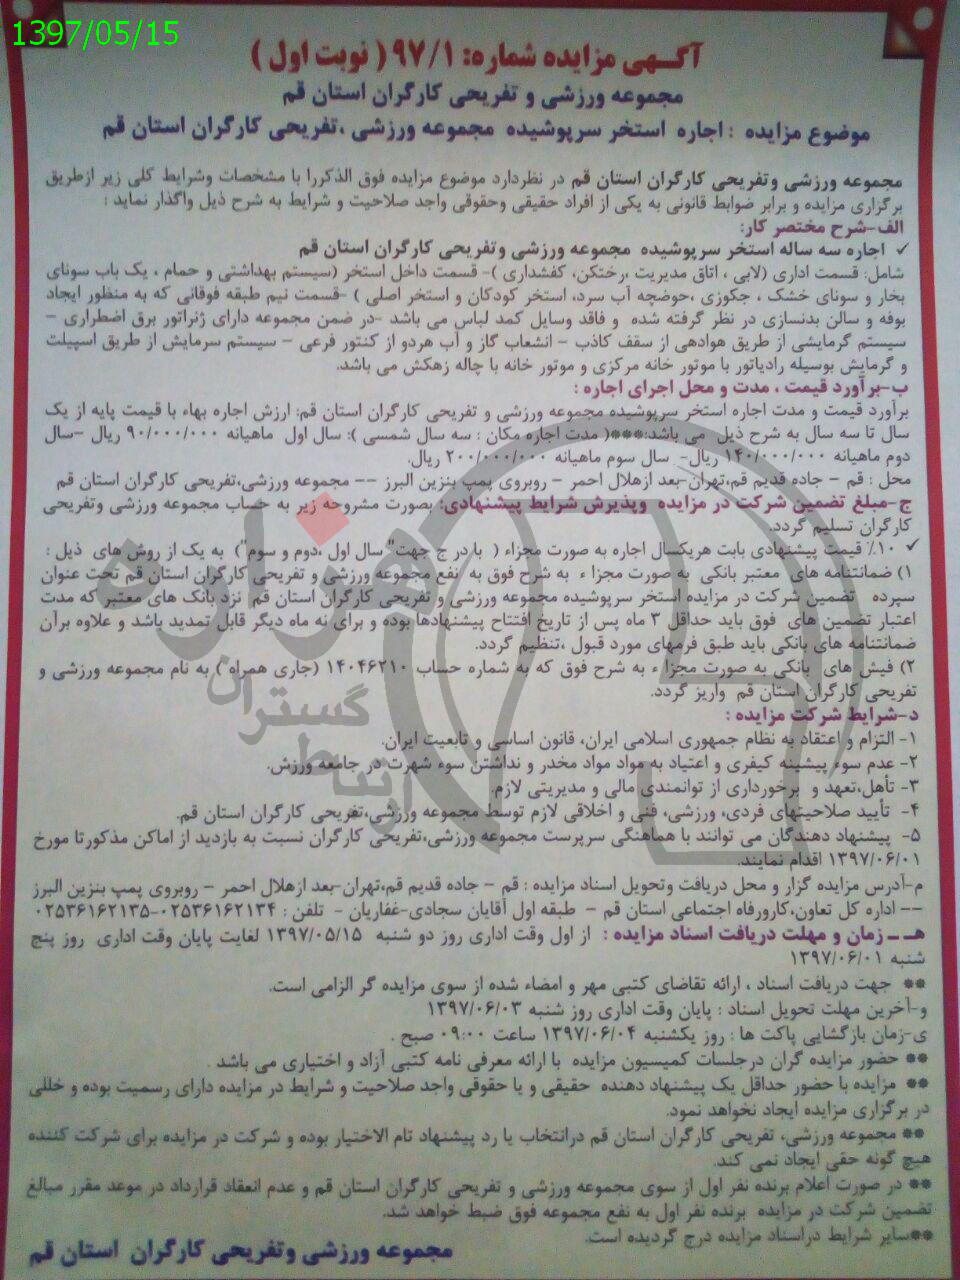 1397/05/15
آگهی مزایده شماره: ۹۷/۱ ( نوبت اول )
مجموعه ورزشی و تفریحی کارگران استان قم
موضوع مزایده : اجاره استخر سرپوشیده مجموعه ورزشی ،تفریحی کارگران استان قم
مجموعه ورزشی وتفریحی کارگران استان قم در نظردارد موضوع مزایده فوق الذکررا با مشخصات وشرایط کلی زیر ازطریق
برگزاری مزایده و برابر ضوابط قانونی به یکی از افراد حقیقی وحقوقی واجد صلاحیت و شرایط به شرح ذیل واگذار نماید :
الف-شرح مختصر کار:
✓ اجاره سه ساله استخر سرپوشیده مجموعه ورزشی وتفریحی کارگران استان قم
شامل: قسمت اداری (لابی ، اتاق مدیریت ،رختکن، کفشداری )- قسمت داخل استخر (سیستم بهداشتی و حمام ، یک باب سونای
بخار و سونای خشک ، جکوزی ،حوضچه آب سرد، استخر کودکان و استخر اصلی ) -قسمت نیم طبقه فوقانی که به منظور ایجاد
بوفه و سالن بدنسازی در نظر گرفته شده و فاقد وسایل کمد لباس می باشد -در ضمن مجموعه دارای ژنراتور برق اضطراری -
سیستم گرمایشی از طریق هوادهی از سقف کاذب - انشعاب گاز و آب هردو از کنتور فرعی - سیستم سرمایش از طریق اسپیلت
و گرمایش بوسیله رادیاتور با موتور خانه مرکزی و موتور خانه با چاله زهکش می باشد.
ب-برآورد قیمت ، مدت و محل اجرای اجاره :
برآورد قیمت و مدت اجاره استخر سرپوشیده مجموعه ورزشی و تفریحی کارگران استان قم: ارزش اجاره بهاء با قیمت پایه از یک
سال تا سه سال به شرح ذیل می باشد:***( مدت اجاره مکان : سه سال شمسی ): سال اول ماهیانه ۹۰/۰۰۰/۰۰۰ ریال -سال
دوم ماهیانه ۱۴۰/۰۰۰/۰۰۰ ریال- سال سوم ماهیانه ۲۰۰/۰۰۰/۰۰۰ ریال.
محل : قم - جاده قدیم قم،تهران-بعد ازهلال احمر - روبروی پمپ بنزین البرز -- مجموعه ورزشی،تفریحی کارگران استان قم
ج-مبلغ تضمین شرکت در مزایده وپذیرش شرایط پیشنهادی: بصورت مشروحه زیر به حساب مجموعه ورزشی وتفریحی
کارگران تسلیم گردد.
✓ ۱۰٪ قیمت پیشنهادی بابت هریکسال اجاره به صورت مجزاء ( با درج جهت" سال اول ،دوم و سوم") به یک از روش های ذیل :
۱) ضمانتنامه های معتبر بانکی به صورت مجزاء به شرح فوق به نفع مجموعه ورزشی و تفریحی کارگران استان قم تحت عنوان
سپرده تضمین شرکت در مزایده استخر سرپوشیده مجموعه ورزشی و تفریحی کارگران استان قم نزد بانک های معتبر که مدت
اعتبار تضمین های فوق باید حداقل ۳ ماه پس از تاریخ افتتاح پیشنهادها بوده و برای نه ماه دیگر قابل تمدید باشد و علاوه برآن
ضمانتنامه های بانکی باید طبق فرمهای مورد قبول ،تنظیم گردد.
۲) فیش های بانکی به صورت مجزاء به شرح فوق که به شماره حساب ۱۴۰۴۶۲۱۰ (جاری همراه ) به نام مجموعه ورزشی و
تفریحی کارگران استان قم واریز گردد.
د-شرایط شرکت مزایده :
۱- التزام و اعتقاد به نظام جمهوری اسلامی ایران، قانون اساسی و تابعیت ایران.
۲- عدم سوء پیشینه کیفری و اعتیاد به مواد مواد مخدر و نداشتن سوء شهرت در جامعه ورزش.
۳- تأهل،تعهد و برخورداری از توانمندی مالی و مدیریتی لازم.
۴- تأیید صلاحیتهای فردی، ورزشی، فنی و اخلاقی لازم توسط مجموعه ورزشی،تفریحی کارگران استان قم.
۵- پیشنهاد دهندگان می توانند با هماهنگی سرپرست مجموعه ورزشی،تفریحی کارگران نسبت به بازدید از اماکن مذکورتا مورخ
۱۳۹۷/۰۶/۰۱ اقدام نمایند.
م-آدرس مزایده گزار و محل دریافت وتحویل اسناد مزایده : قم - جاده قدیم قم،تهران-بعد ازهلال احمر - روبروی پمپ بنزین البرز
-- اداره کل تعاون،کارورفاه اجتماعی استان قم - طبقه اول آقایان سجادی-غفاریان - تلفن : ۰۲۵۳۶۱۶۲۱۳۴-۰۲۵۳۶۱۶۲۱۳۵
هـ - زمان و مهلت دریافت اسناد مزایده : از اول وقت اداری روز دو شنبه ۱۳۹۷/۰۵/۱۵ لغایت پایان وقت اداری روز پنج
شنبه ۱۳۹۷/۰۶/۰۱
** جهت دریافت اسناد ، ارائه تقاضای کتبی مهر و امضاء شده از سوی مزایده گر الزامی است.
و-آخرین مهلت تحویل اسناد : پایان وقت اداری روز شنبه ۱۳۹۷/۰۶/۰۳
ی-زمان بازگشایی پاکت ها : روز یکشنبه ۱۳۹۷/۰۶/۰۴ ساعت ۰۹:۰۰ صبح .
** حضور مزایده گران درجلسات کمیسیون مزایده با ارائه معرفی نامه کتبی آزاد و اختیاری می باشد .
** مزایده با حضور حداقل یک پیشنهاد دهنده حقیقی و یا حقوقی واجد صلاحیت و شرایط در مزایده دارای رسمیت بوده و خللی
در برگزاری مزایده ایجاد نخواهد نمود.
** مجموعه ورزشی، تفریحی کارگران استان قم درانتخاب یا رد پیشنهاد تام الاختیار بوده و شرکت در مزایده برای شرکت کننده
هیچ گونه حقی ایجاد نمی کند.
** در صورت اعلام برنده نفر اول از سوی مجموعه ورزشی و تفریحی کارگران استان قم و عدم انعقاد قرارداد در موعد مقرر مبالغ
تضمین شرکت در مزایده برنده نفر اول به نفع مجموعه فوق ضبط خواهد شد.
**سایر شرایط دراسناد مزایده درج گردیده است.
مجموعه ورزشی وتفریحی کارگران استان قم
هزاره
گستران
ارتباط